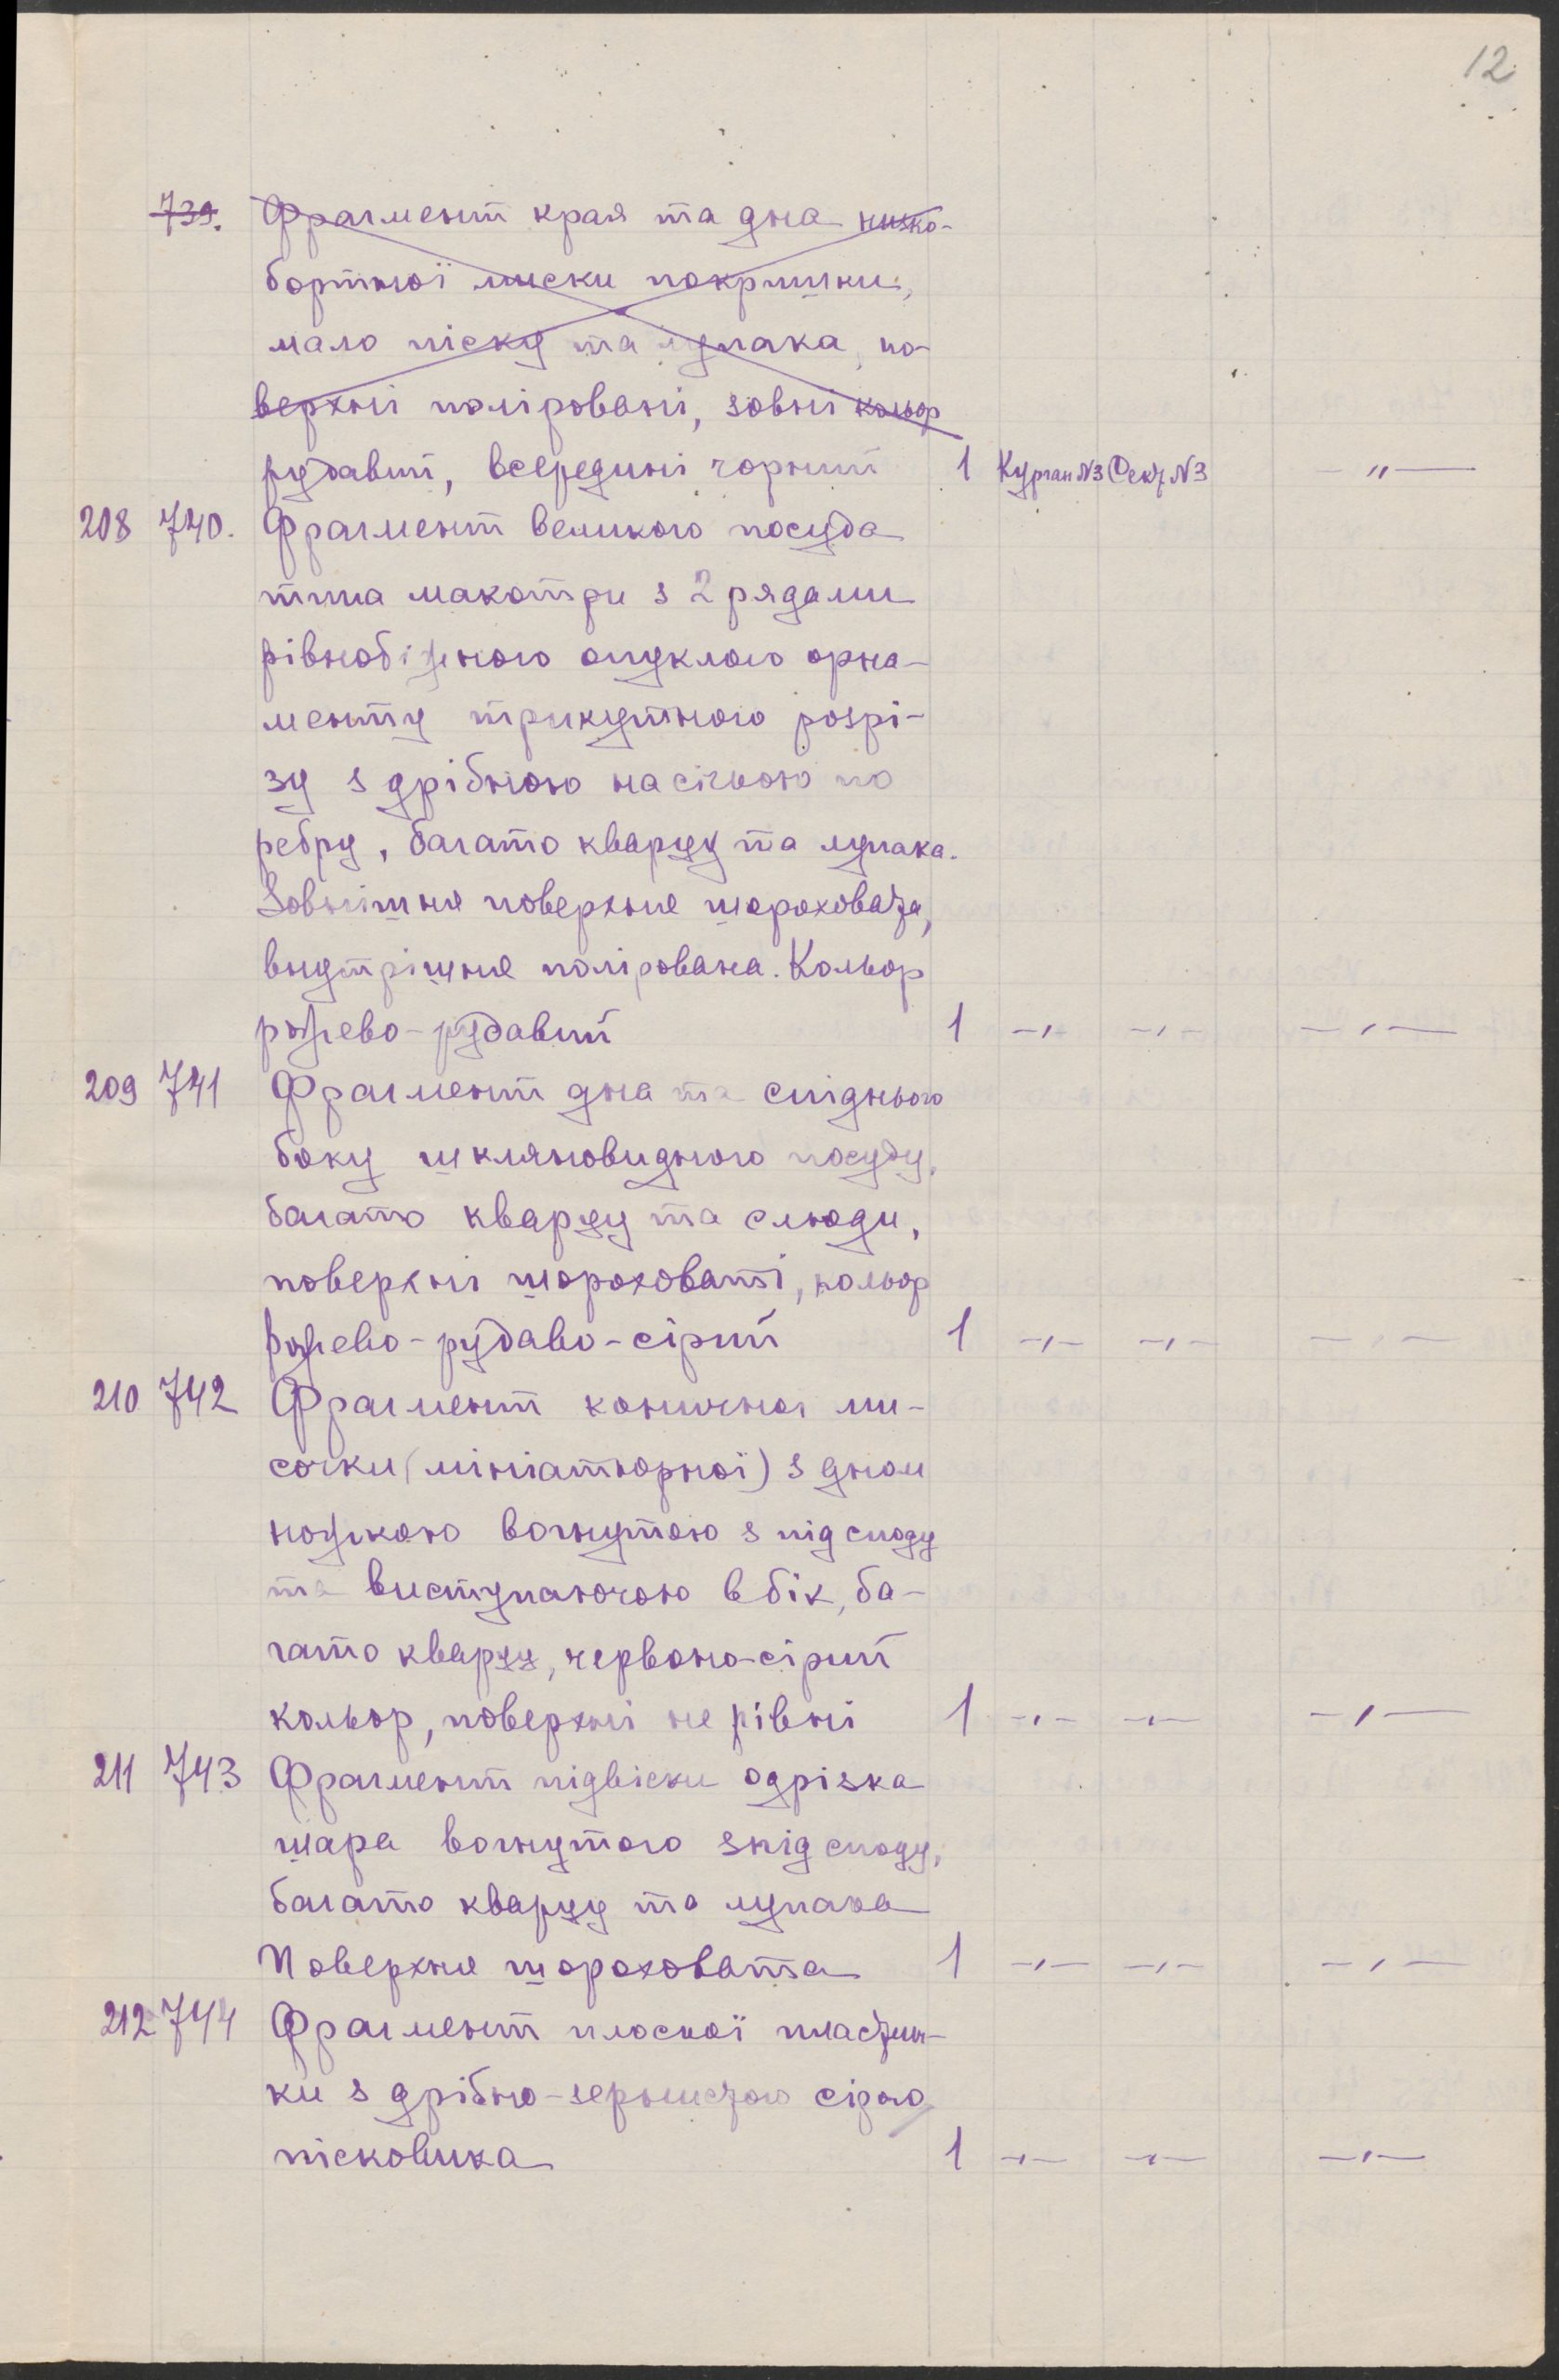 12
739. Фрагмент края та дна низко-
бортної миски покришки,
мало піску та лупака, по-
верхні поліровані, зовні кольор
рудавий, всередині чорний 1 Курган №3 Сект №3 — " —
208 740. Фрагмент великого посуда
типа макотри з 2 рядами
рівнобіжного опуклого орна-
менту трикутного розрі-
зу з дрібною насічкою по
ребру, багато кварцу та лупака.
Зовнішнє поверхнє шороховата,
внутрішнє полірована. Кольор
рожево-рудавий 1 -,- -,- —,—
209 741 Фрагмент дна та спіднього
боку шкляновидного посуду,
багато кварцу та слюди,
поверхні шороховаті, кольор
рожево-рудаво-сірий 1 -,- -,- —,—
210 742 Фрагмент конічної ми-
сочки (мініатюрної) з дном
ножкою вогнутою з під споду
та виступаючою в бік, ба-
гато кварцу, червоно-сірий
кольор, поверхні не рівні 1 -,- -,- —,—
211 743 Фрагмент підвіски одрізка
шара вогнутого з під споду,
багато кварцу та лупака
Поверхнє шороховата 1 -,- -,- —,—
212 744 Фрагмент плоскої пластин-
ки з дрібно-зернистого сірого
пісковика 1 -,- -,- —,—